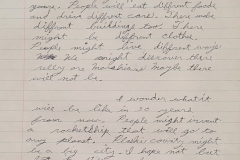 People will eat diffrent foods
and drive diffrent cars. There
different buildings too. There
might be diffrent clothes.
People might live diffrent ways.
We might discover there
really are Martians. Maybe there
will not be.
I wonder what it
will be like in 20 years
from now. People might invent
a rocketship that will go to
any planet. might
be a big city. I hope not but